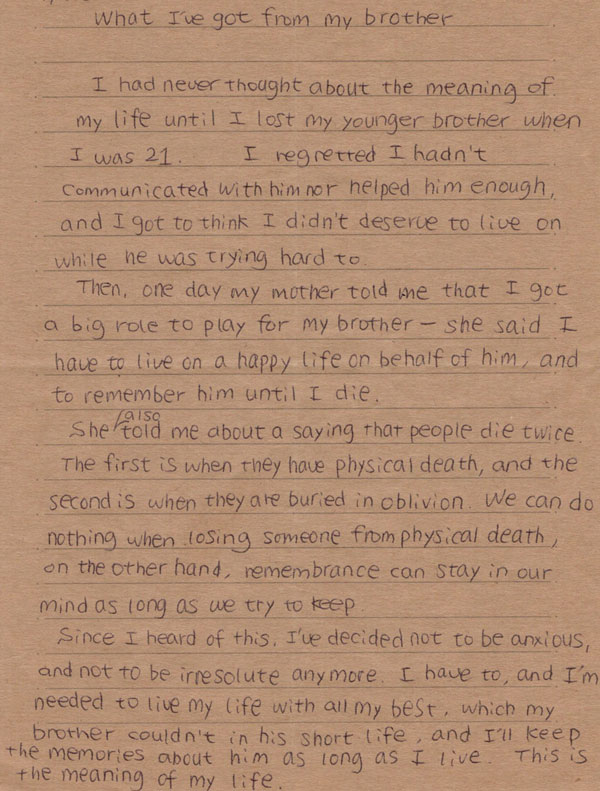 What I've got from my brother
I had never thought about the meaning of
my life until I lost my younger brother when
I was 21. I regretted I hadn't
communicated with him nor helped him enough,
and I got to think I didn't deserve to live on
while he was trying hard to.
Then, one day my mother told me that I got
a big role to play for my brother – she said I
have to live on a happy life on behalf of him, and
to remember him until I die.
She also told me about a saying that people die twice.
The first is when they have physical death, and the
second is when they are buried in oblivion. We can do
nothing when losing someone from physical death,
on the other hand, remembrance can stay in our
mind as long as we try to keep.
Since I heard of this, I've decided not to be anxious,
and not to be irresolute anymore. I have to, and I'm
needed to live my life with all my best, which my
brother couldn't in his short life, and I'll keep
the memories about him as long as I live. This is
the meaning of my life.